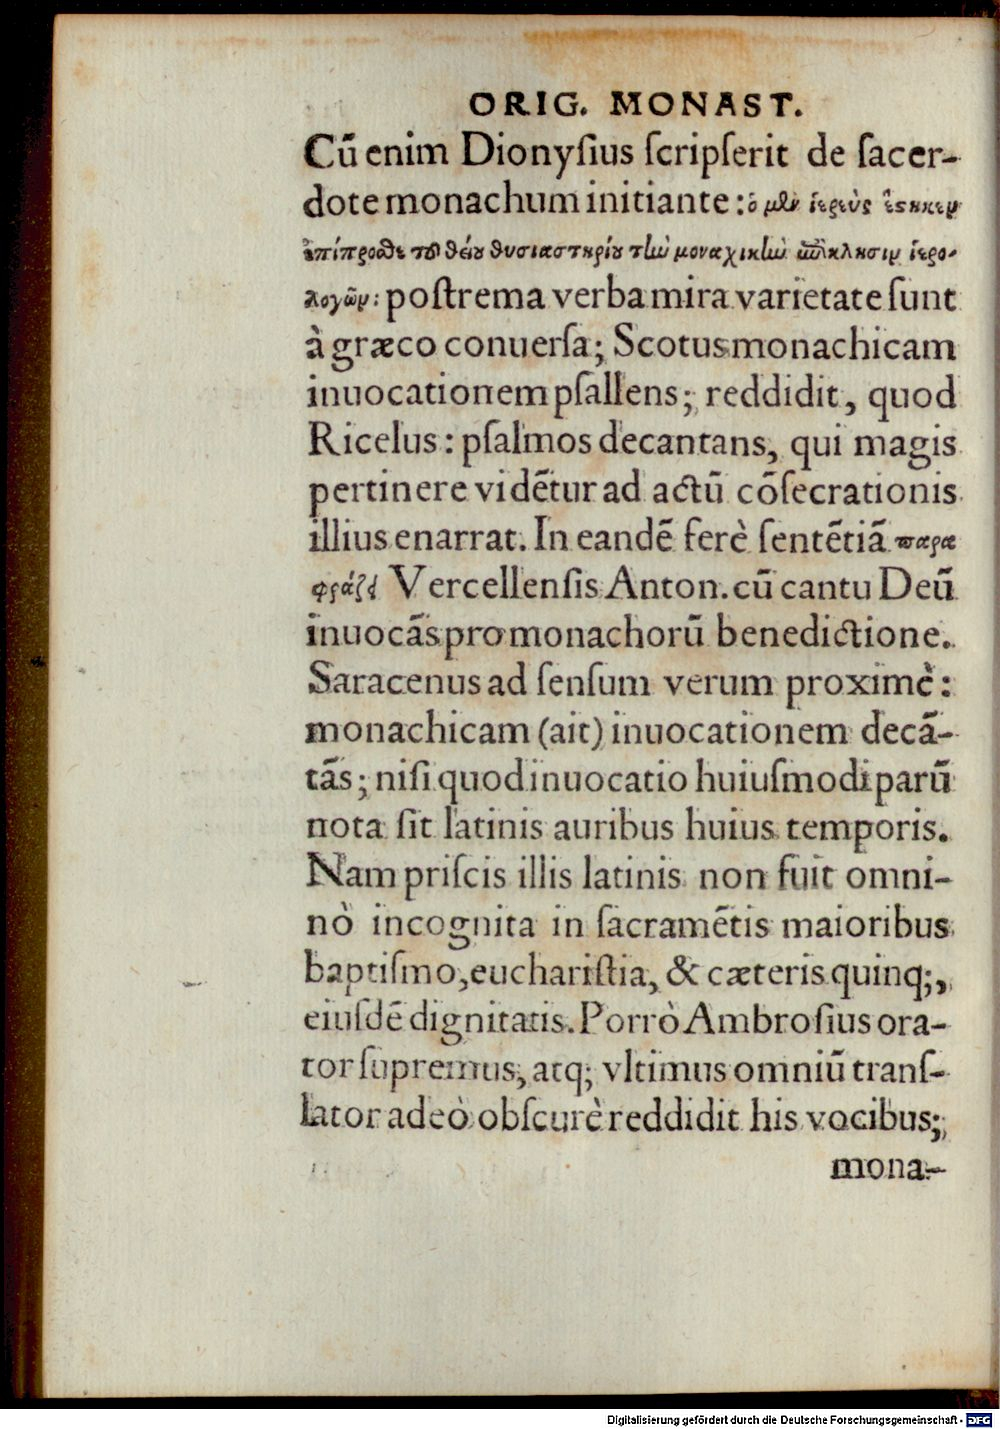 ORIG. MONAST.
Cū enim Dionyſius ſcripſerit de ſacer-
dote monachum initiante: ὁ μὲν ἱερεὺς ἕστηκεν
ἐπίπροσθε τοῦ θείου θυσιαστηρίου τὴν μοναχικὴν ἐπίκλησιν ἱερο-
λογῶν: poſtrema verba mira varietate ſunt
à græco conuerſa; Scotus monachicam
inuocationem pſallens; reddidit, quod
Ricelus: pſalmos decantans, qui magis
pertinere vidētur ad actū cōſecrationis
illius enarrat. In eandē ferè ſentētiā παρα
φράζει Vercellenſis Anton. cū cantu Deū
inuocās pro monachorū benedictione.
Saracenus ad ſenſum verum proximè:
monachicam (ait) inuocationem decā-
tās; niſi quod inuocatio huiuſmodi parū
nota ſit latinis auribus huius temporis.
Nam priſcis illis latinis non fuit omni-
nò incognita in ſacramētis maioribus
baptiſmo, euchariſtia, & cæteris quinq;,
eiuſdē dignitatis. Porrò Ambroſius ora-
tor ſupremus, atq; vltimus omniū tranſ-
lator adeò obſcurè reddidit his vocibus;
mona-
Digitalisierung gefördert durch die Deutsche Forschungsgemeinschaft - DFG